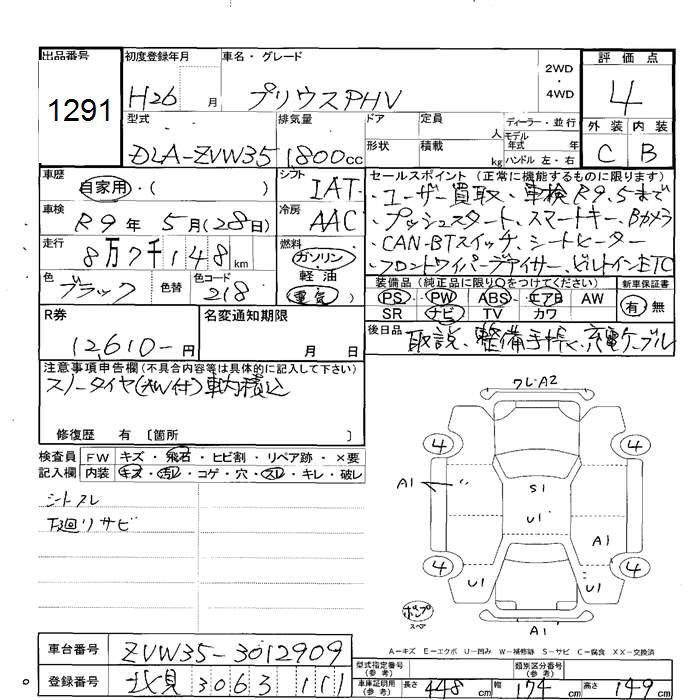 出品番号
1291
初度登録年月
H26 月
車名・グレード
プリウスPHV
2WD
・
4WD
評価点
4
外装 内装
C B
型式
DLA-ZVW35
排気量
1800cc
ドア
定員
人
形状
積載
kg
ディーラー・並行
モデル
年式 年
ハンドル 左・右
車歴
自家用・( )
シフト
IAT
車検
R9年 5月(28日)
冷房
AAC
走行
8万7千148km
燃料
ガソリン
軽油
(電気)
色
ブラック
色替
色コード
218
セールスポイント (正常に機能するものに限ります)
・ユーザー買取、・車検R9.5まで
・プッシュスタート、スマートキー、Bカメラ
・CAN-BTスイッチ、シートヒーター
・フロントワイパーデアイサー、ビルトインETC
装備品(純正品に限り○をつけてください)
PS PW ABS エアB AW
SR ナビ TV カワ
新車保証書
有・無
R券
12,610-円
名変通知期限
月 日
後日品
取説、整備手帳、充電ケーブル
注意事項申告欄(不具合内容等は具体的に記入して下さい)
スノータイヤ(AW付)車内積込
修復歴 有 〔箇所 〕
検査員
記入欄
FW キズ・飛石・ヒビ割・リペア跡・×要
内装 キズ・汚レ・コゲ・穴・スレ・キレ・破レ
シートスレ
下廻りサビ
ワレA2
4 4
A1
S1
U1
A1
4 4
U1 U1
ポンプ
スペア
A1
A=キズ E=エクボ U=凹み W=補修跡 S=サビ C=腐食 XX=交換済
車台番号
ZVW35-3012909
登録番号
北見 306 3 111
型式指定番号
(参考)
類別区分番号
(参考)
車庫証明用
(参考)
長さ 448cm 幅 174cm 高さ 149cm